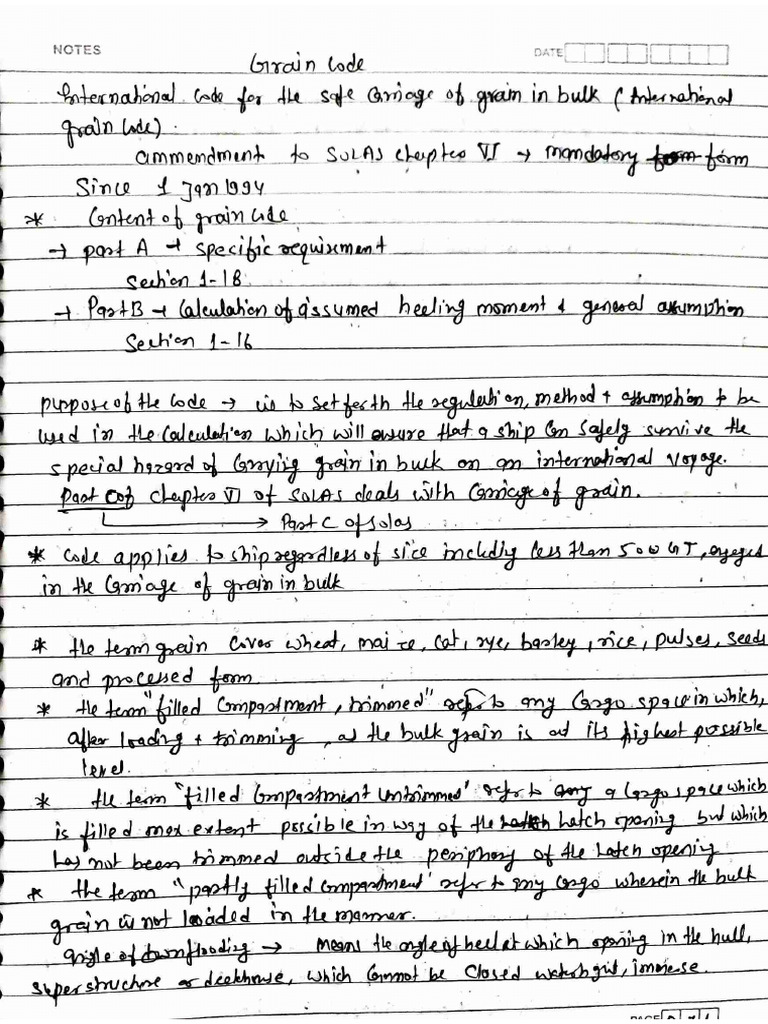 NOTES
DATE
Grain Code
International Code for the safe Carriage of grain in bulk (International
grain Code).
ammendment to SOLAS chapter VI → mandatory form
Since 1 Jan 1994
* Content of grain code
→ part A → specific requirement
Section 1-18
→ Part B → Calculation of assumed heeling moment & general assumption
Section 1-16
purpose of the Code → is to set forth the regulation, method + assumption to be
used in the Calculation which will ensure that a ship Can safely survive the
special hazard of Carrying grain in bulk on an international voyage.
Part C of chapter VI of SOLAS deals with Carriage of grain.
→ Part C of Solas
* Code applies to ship regardless of size including less than 500 GT, engaged
in the Carriage of grain in bulk
* the term grain Cover wheat, maize, oat, rye, barley, rice, pulses, seeds
and processed form
* the term "filled Compartment, trimmed" refer to any Cargo space in which,
after loading + trimming, as the bulk grain is at its highest possible
level.
* the term "filled Compartment Untrimmed" refer to any a Cargo space which
is filled max extent possible in way of the hatch opening but which
has not been trimmed outside the periphery of the hatch opening
* the term "partly filled Compartment" refer to any Cargo wherein the bulk
grain is not loaded in the manner.
angle of downflooding → means the angle of heel at which opening in the hull,
superstructure or deckhouse, which Cannot be Closed watertight, immerse.